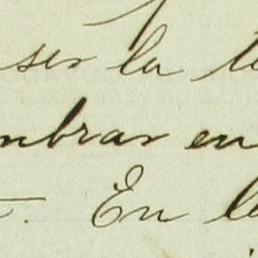 ser la te
mbrar en
En le